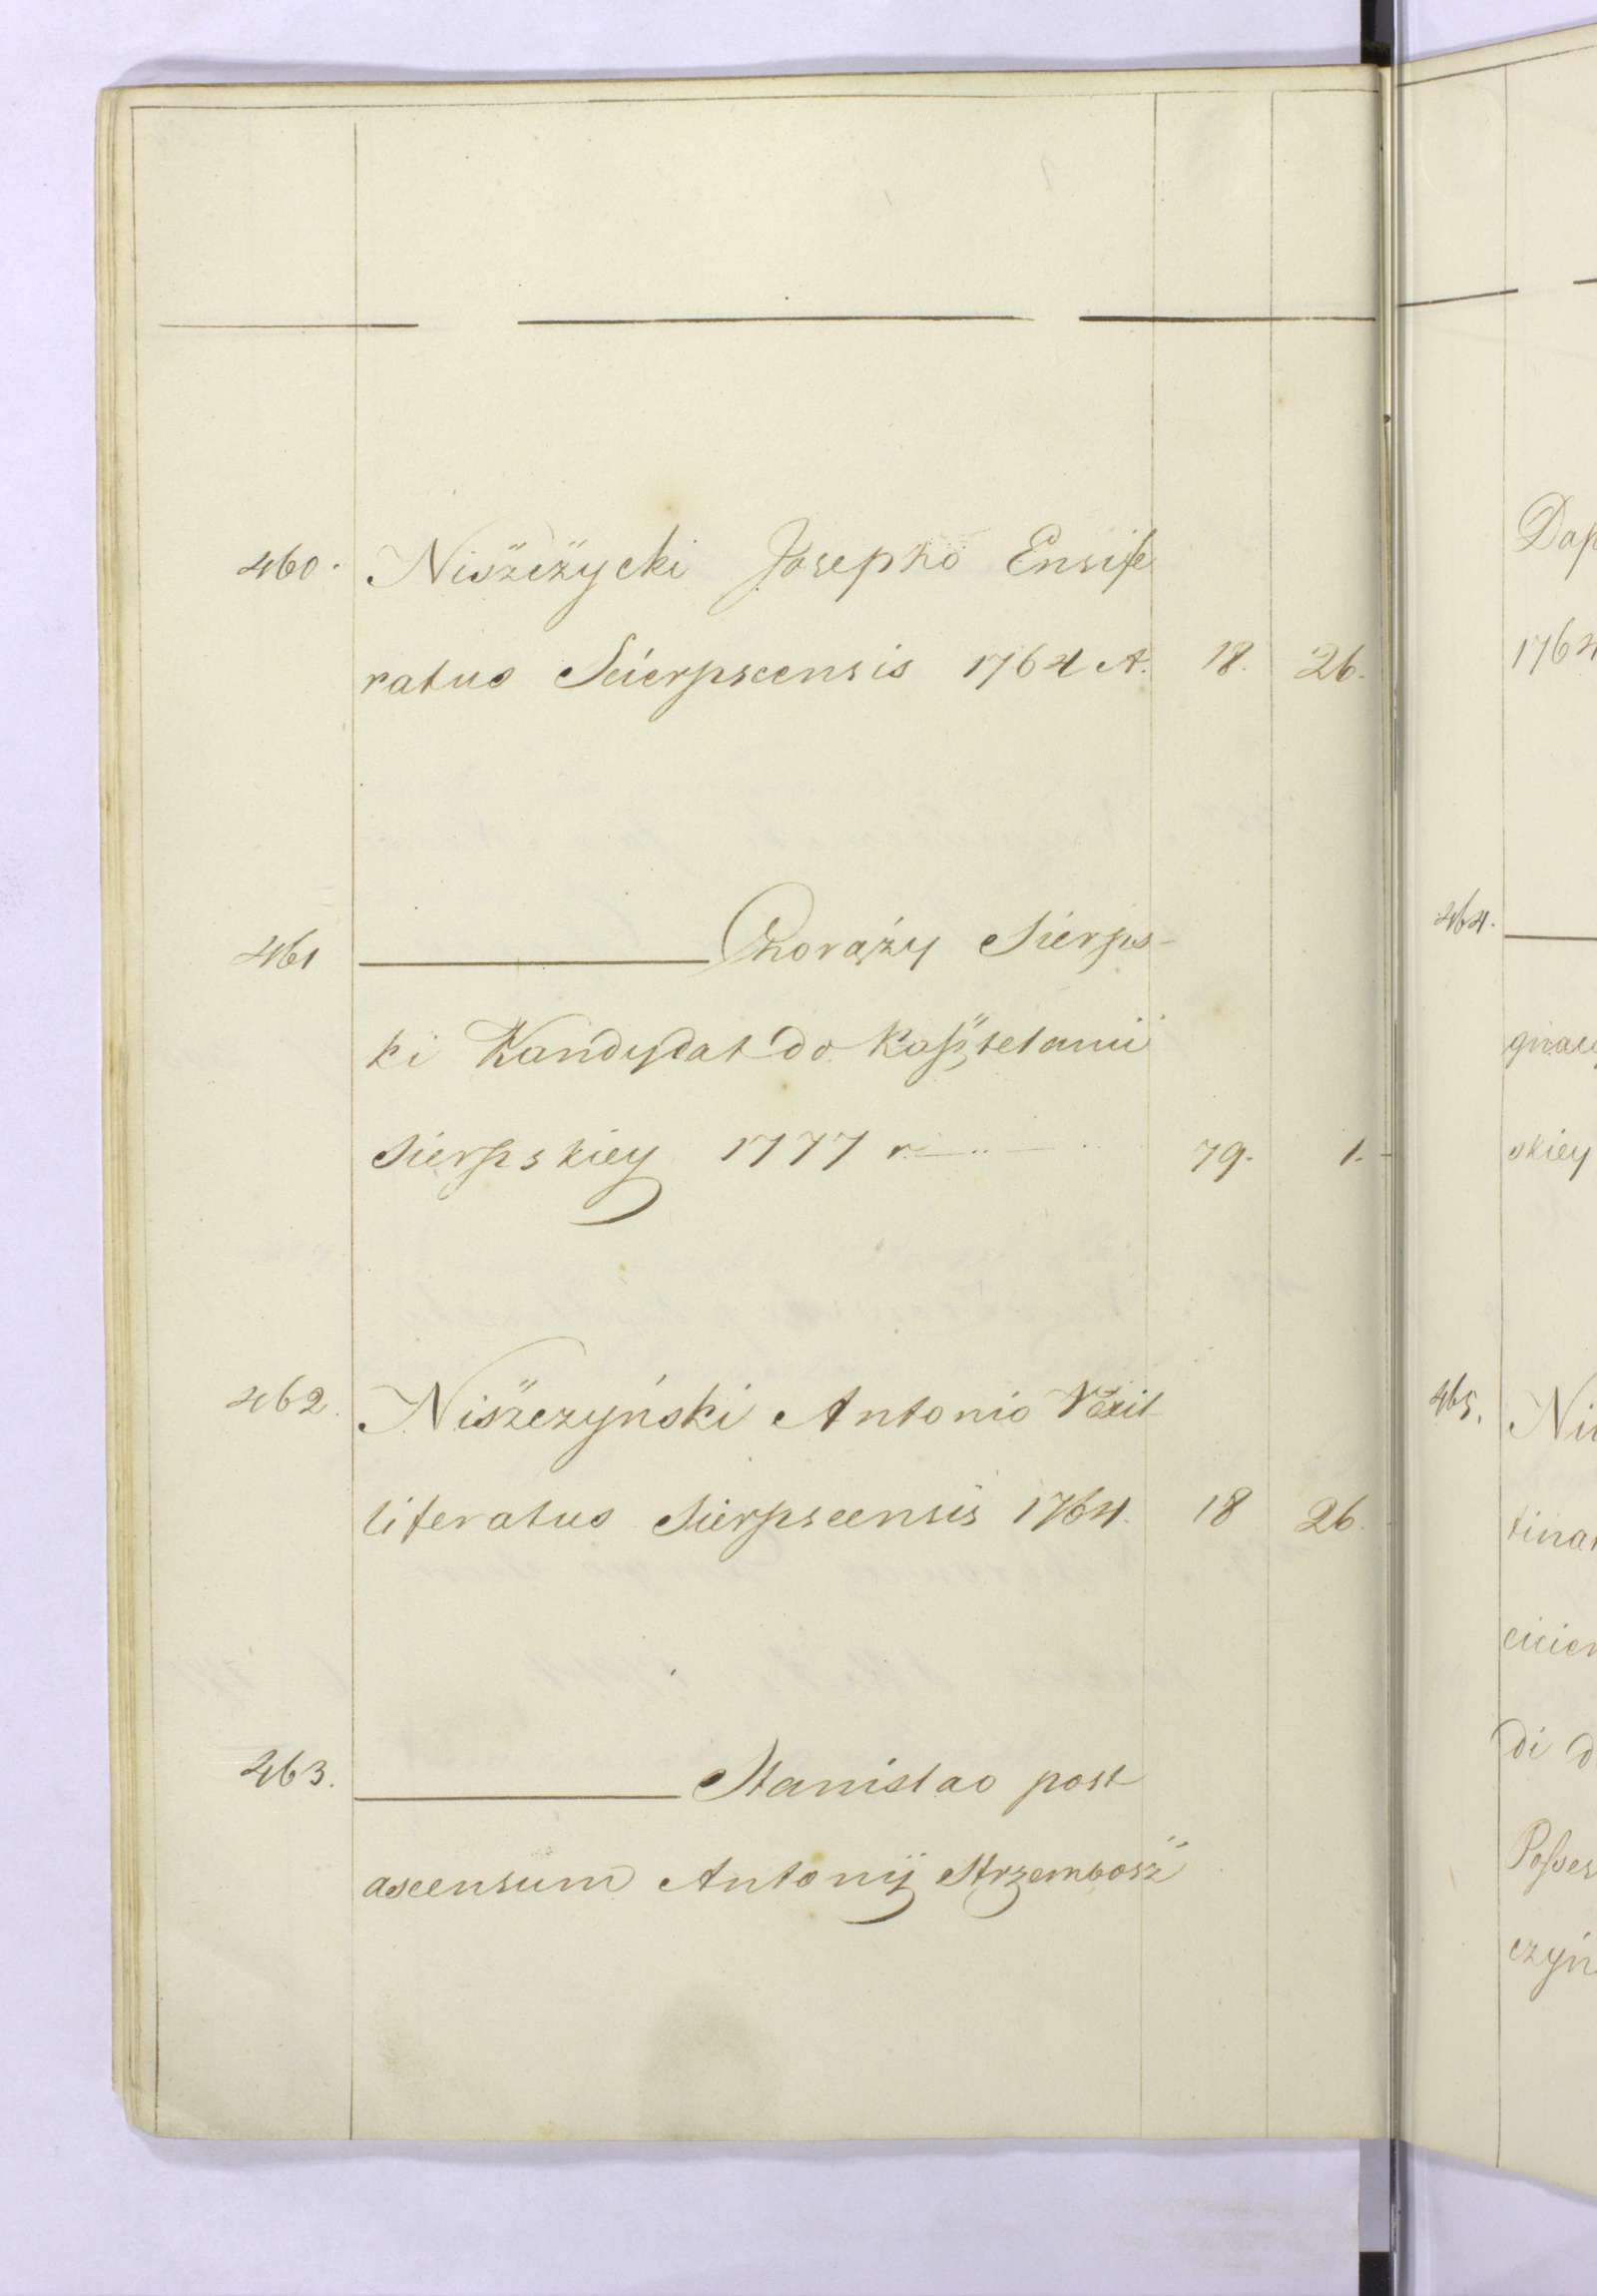 460. Niszczycki Josepho Ensife
ratus Scierpscensis 1764 A. 18. 26.
461 Chorąży Sierps-
ki Kandydat do Kasztelanii
Sierpskiey 1777 r. 79. 1.
462. Niszczyński Antonio Vexil
liferatus Sierpscensis 1764. 18 26.
463. Stanislao post
ascensum Antonij Strzembosz
1764
464.
gnacy
skiey
465. Ni
tinat
di d
Posses
czyń